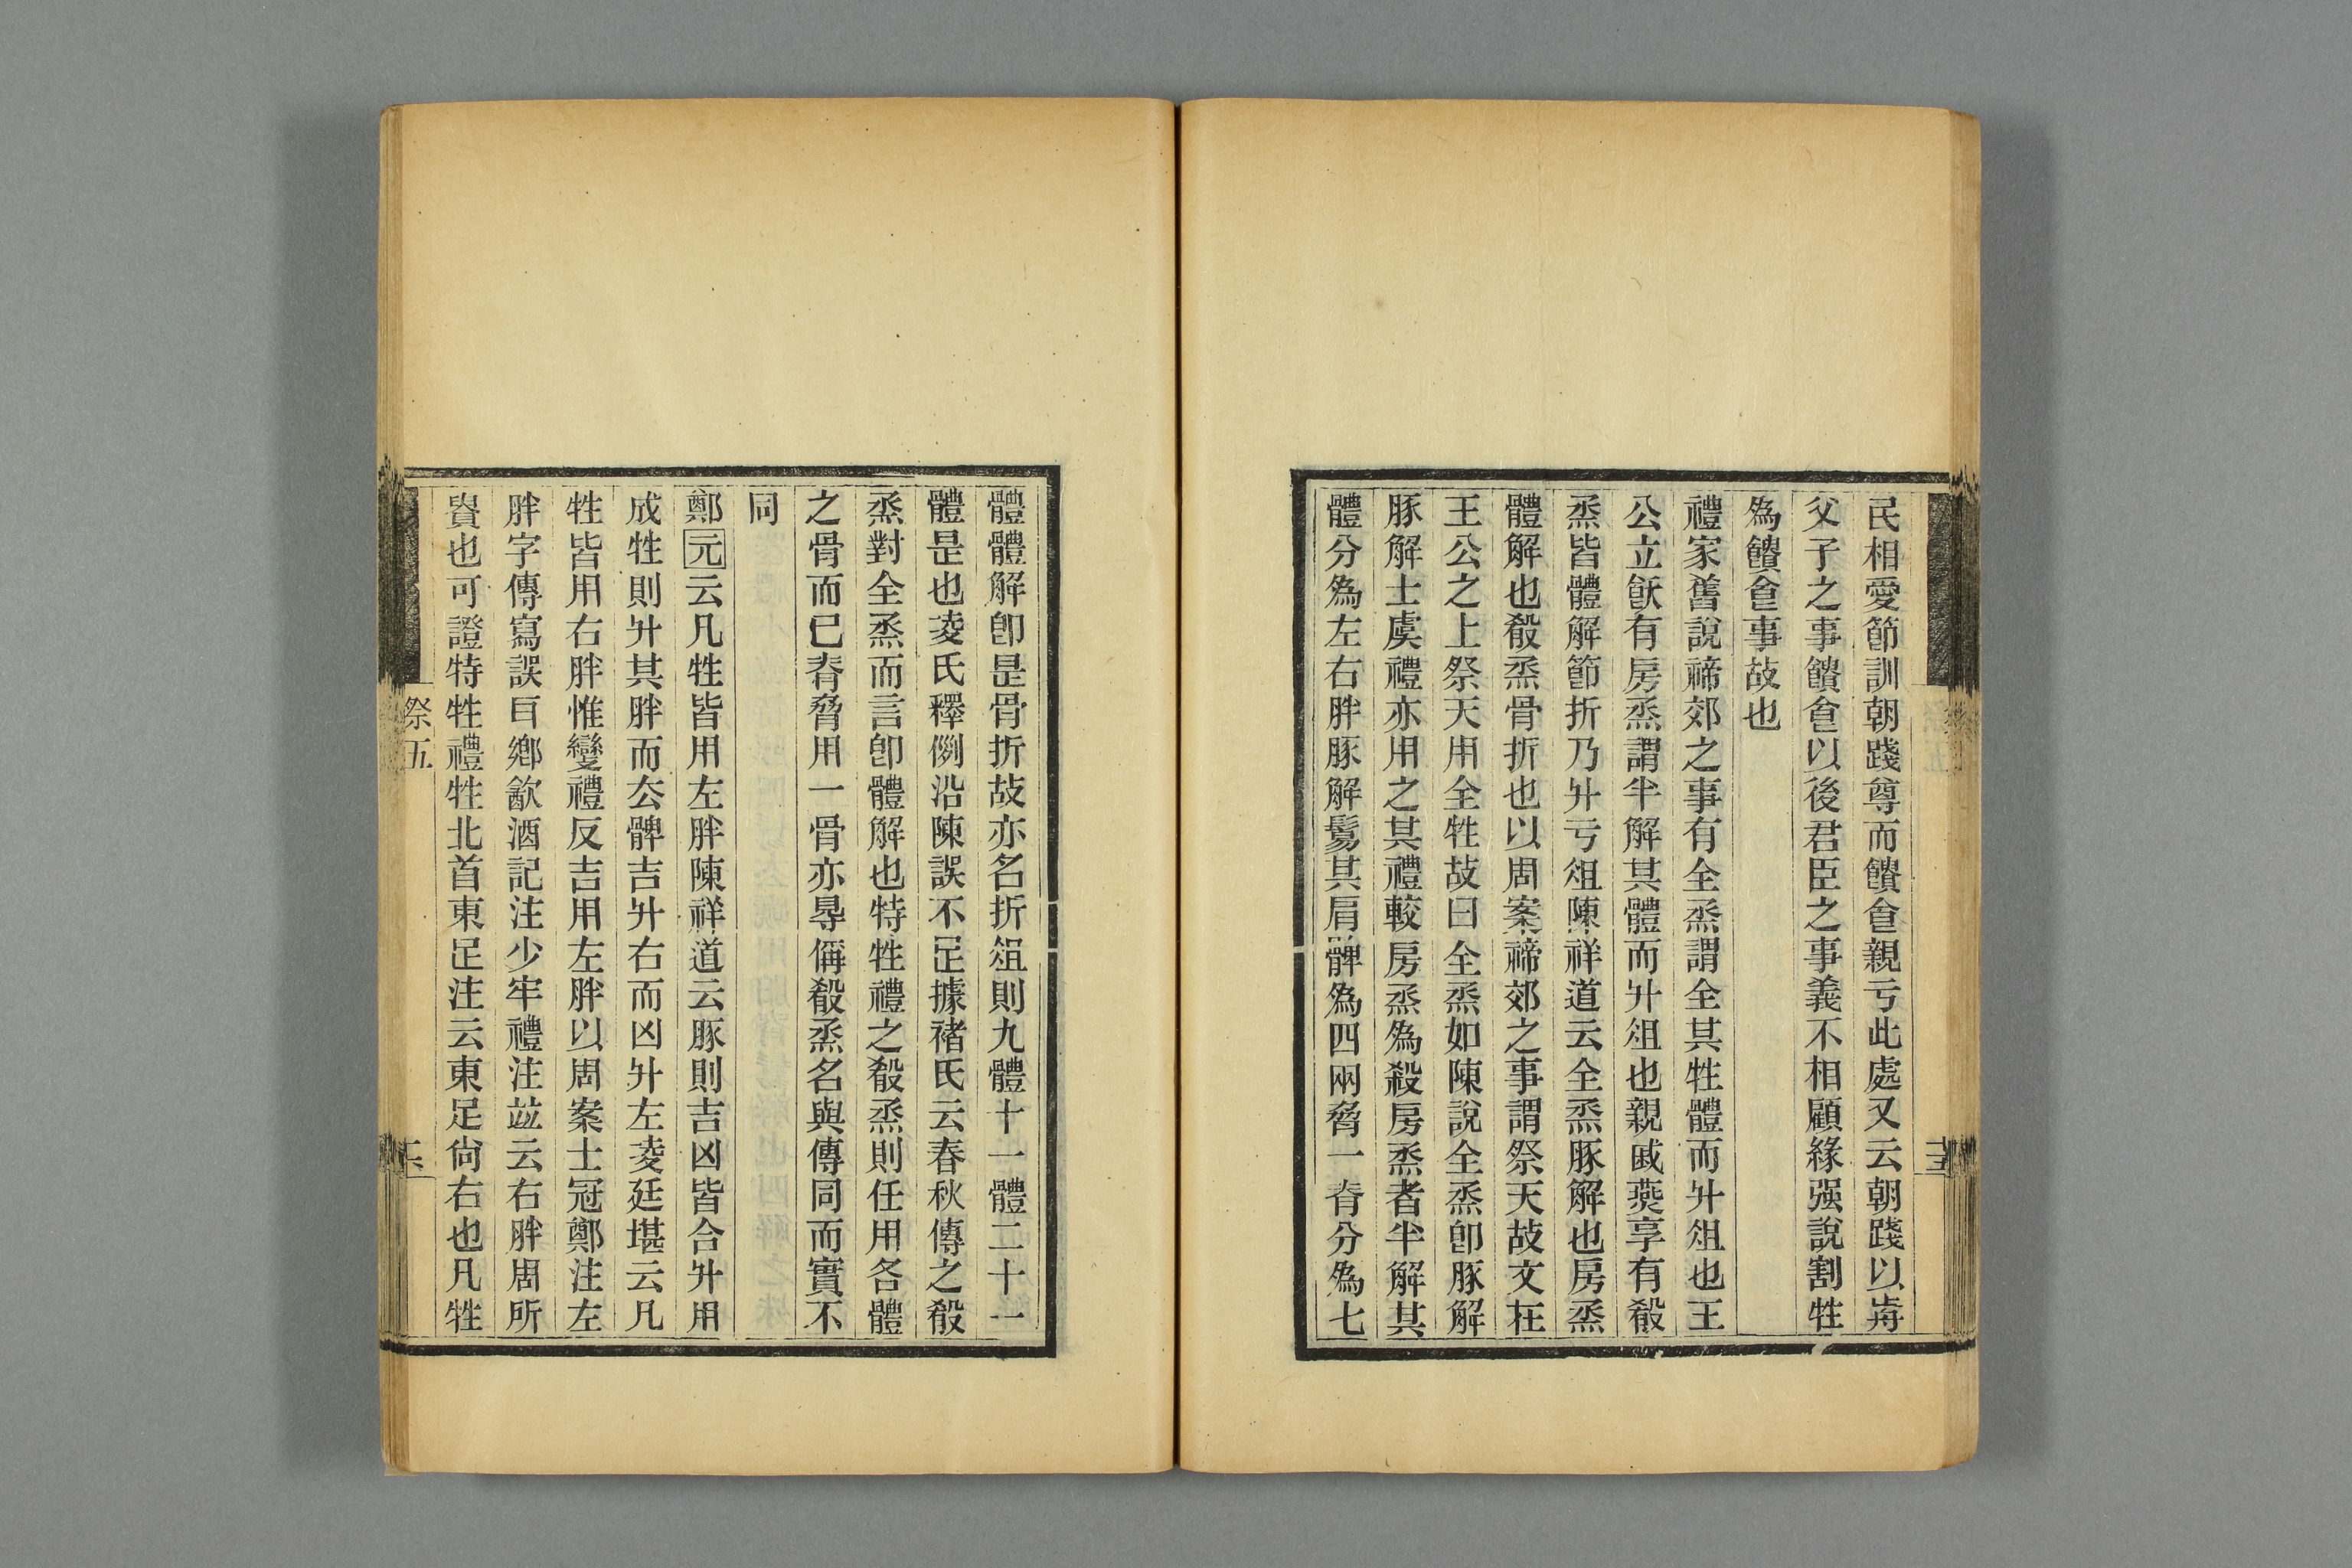 民相愛節訓朝踐尊而饋𠊊親亏此處又云朝踐以歬
父子之事饋𠊊以後君臣之事義不相顧緣强說割牲
爲饋𠊊事故也
禮家舊說禘郊之事有全烝謂全其牲體而升俎也王
公立飫有房烝謂半解其體而升俎也親戚燕享有殽
烝皆體解節折乃升亏俎陳祥道云全烝豚解也房烝
體解也殽烝骨折也以周案禘郊之事謂祭天故文在
王公之上祭天用全牲故曰全烝如陳說全烝卽豚解
豚解士虞禮亦用之其禮較房烝爲殺房烝者半解其
體分爲左右胖豚解鬄其肩髀爲四兩脅一脊分爲七
體體解卽是骨折故亦名折俎則九體十一體二十一
體是也凌氏釋例沿陳誤不足據褚氏云春秋傳之殽
烝對全烝而言卽體解也特牲禮之殽烝則任用各體
之骨而已脊脅用一骨亦得偁殽烝名與傳同而實不
同
鄭元云凡牲皆用左胖陳祥道云豚則吉凶皆合升用
成牲則升其胖而去髀吉升右而凶升左凌廷堪云凡
牲皆用右胖惟變禮反吉用左胖以周案士冠鄭注左
胖字傳寫誤㠯鄉飮酒記注少牢禮注竝云右胖周所
貴也可證特牲禮牲北首東足注云東足尙右也凡牲
祭五